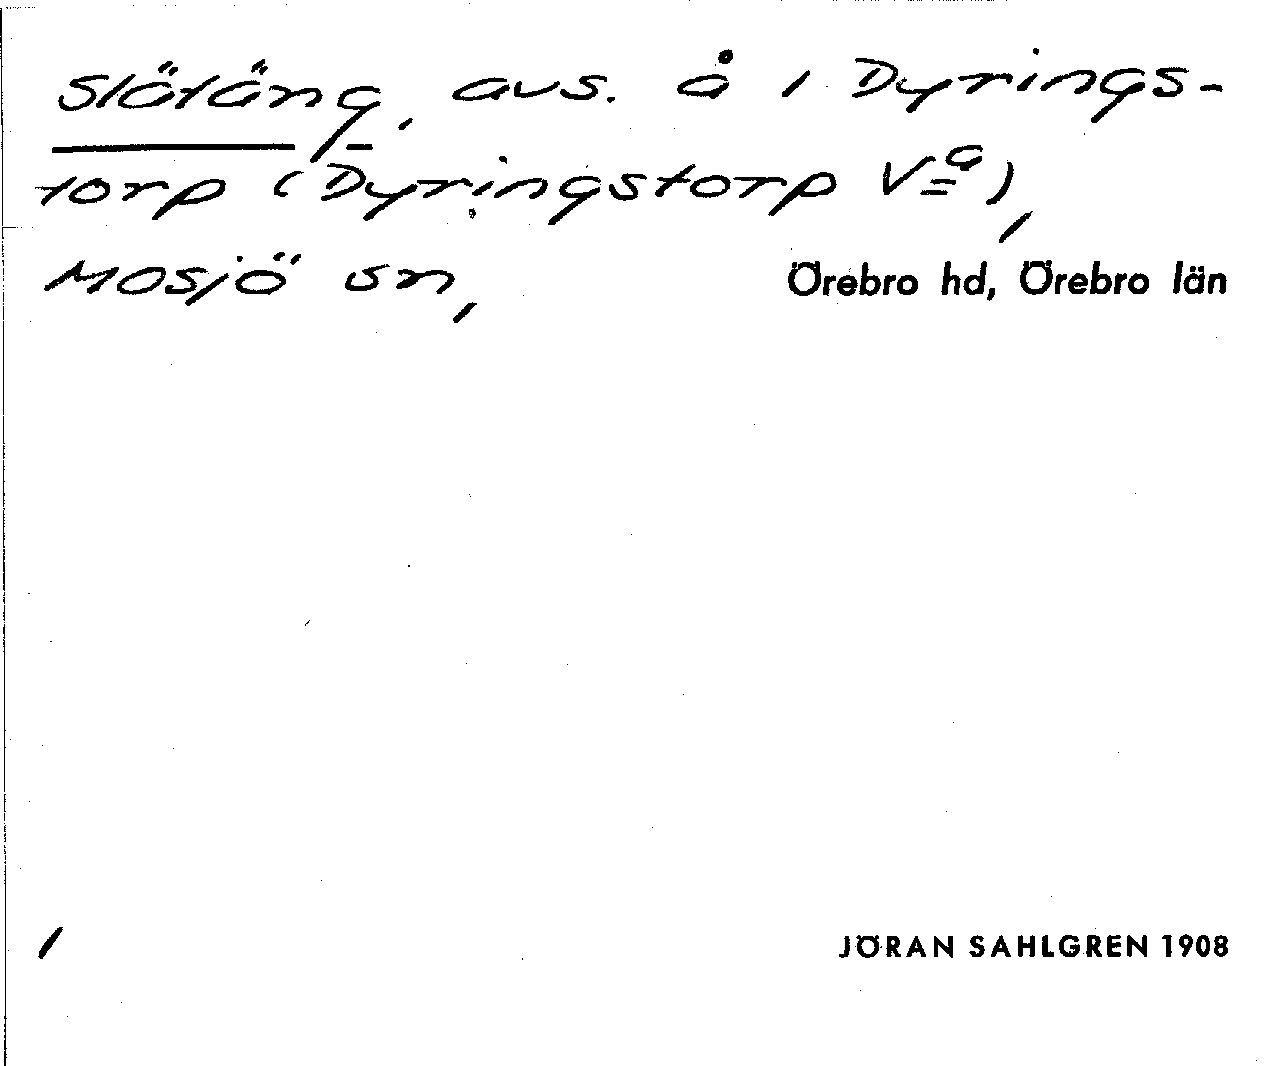 Slätäng, avs. å i Dyrings-
torp (Dyringstorp Vᵃ),
Mosjö sn, Örebro hd, Örebro län
/
JÖRAN SAHLGREN 1908